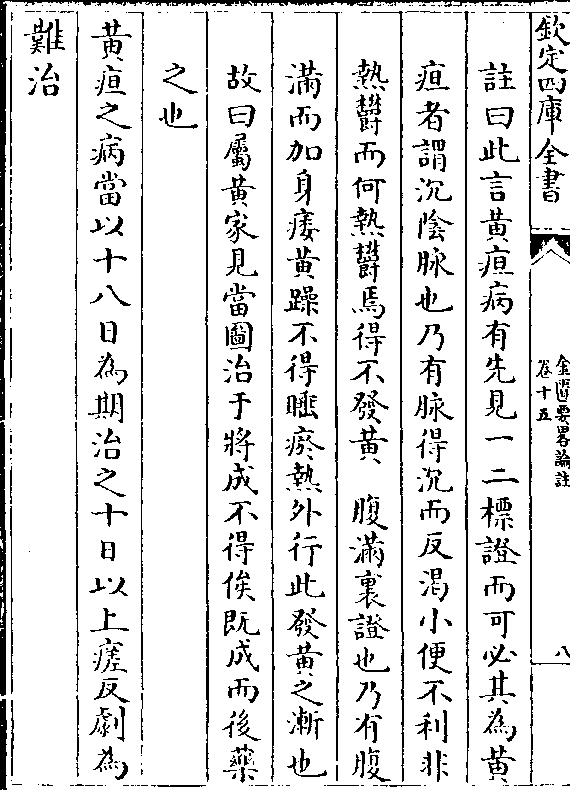 欽定四庫全書
金匱要畧論註
卷十五
八
註曰此言黃疸病有先見一二標證而可必其為黃
疸者謂沉陰脉也乃有脉得沉而反渴小便不利非
熱鬱而何熱鬱焉得不發黃 腹滿裏證也乃有腹
滿而加身痿黃躁不得睡瘀熱外行此發黃之漸也
故曰屬黃家見當圖治于將成不得俟既成而後藥
之也
黃疸之病當以十八日為期治之十日以上瘥反劇為
難治